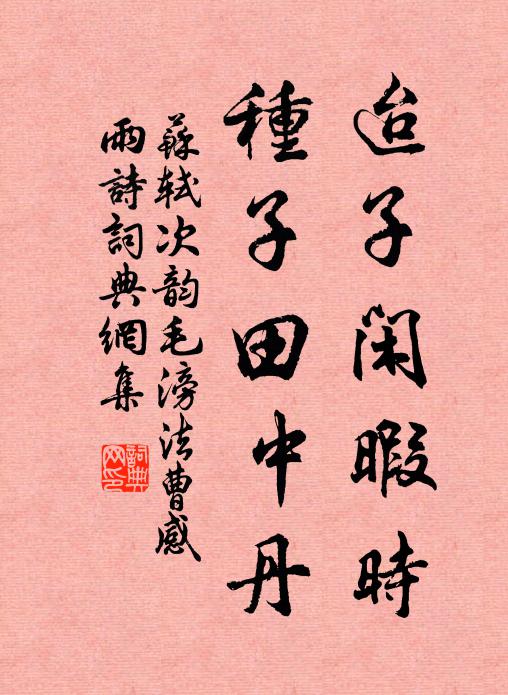 迨子闲暇時
種子田中丹
蘇轼次韵毛滂法曹感
雨詩詞典網集
詞典网印